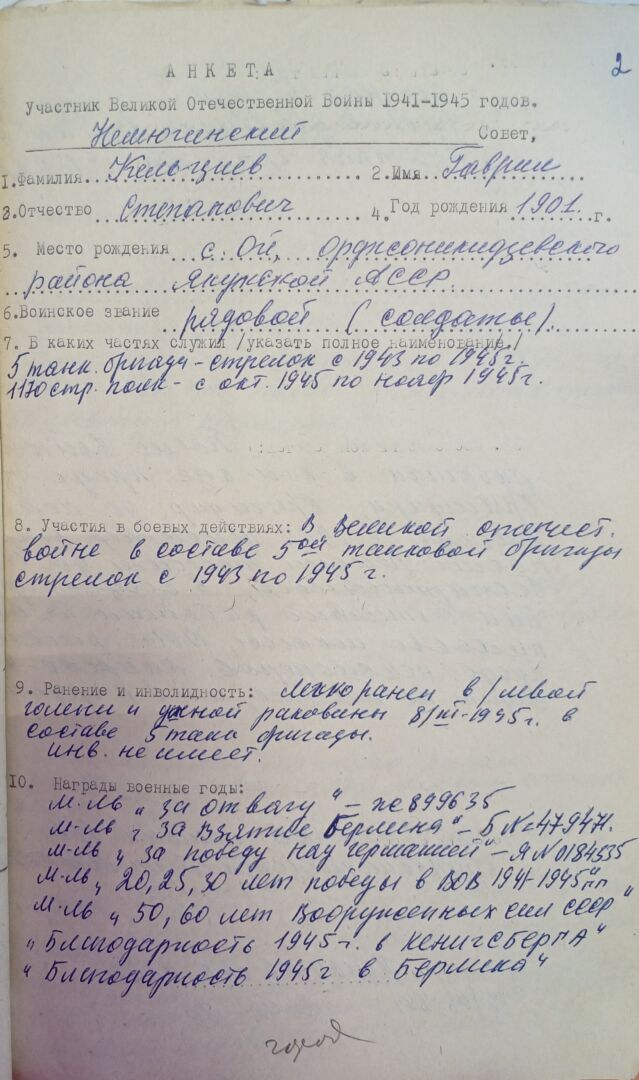 2
АНКЕТА
Участник Великой Отечественной Войны 1941-1945 годов.
Немюгинский Совет,
1.Фамилия Кельциев 2.Имя Гаврил
3.Отчество Степанович 4. Год рождения 1901 г.
5. Место рождения с. Ой, Орджоникидзевского
района Якутской АССР
6.Воинское звание рядовой (солдаты).
7. В каких частях служил /указать полное наименование/
5 танк. бригада - стрелок с 1943 по 1945г.
1170 стр. полк - с окт. 1945 по ноябр 1945г.
8. Участия в боевых действиях: В Великой отечест.
войне в составе 5ой танковой бригады
стрелок с 1943 по 1945 г.
9. Ранение и инволидность: Легкоранен в /левой
голени и ушной раковины 8/III-1945г. в
составе 5 танк бригады.
инв. не имеет.
10. Награды военные годы:
м-ль „За отвагу" - 899635
м-ль „За взятие Берлина" - Б №479471.
м-ль „За победу над Германией" - Я №0184535
м-ль „20, 25, 30 лет победы в ВОВ 1941-1945гг"
м-ль „50, 60 лет Вооруженных сил СССР"
„Благодарность 1945г. в Кенигсберга"
„Благодарность 1945г в Берлина"